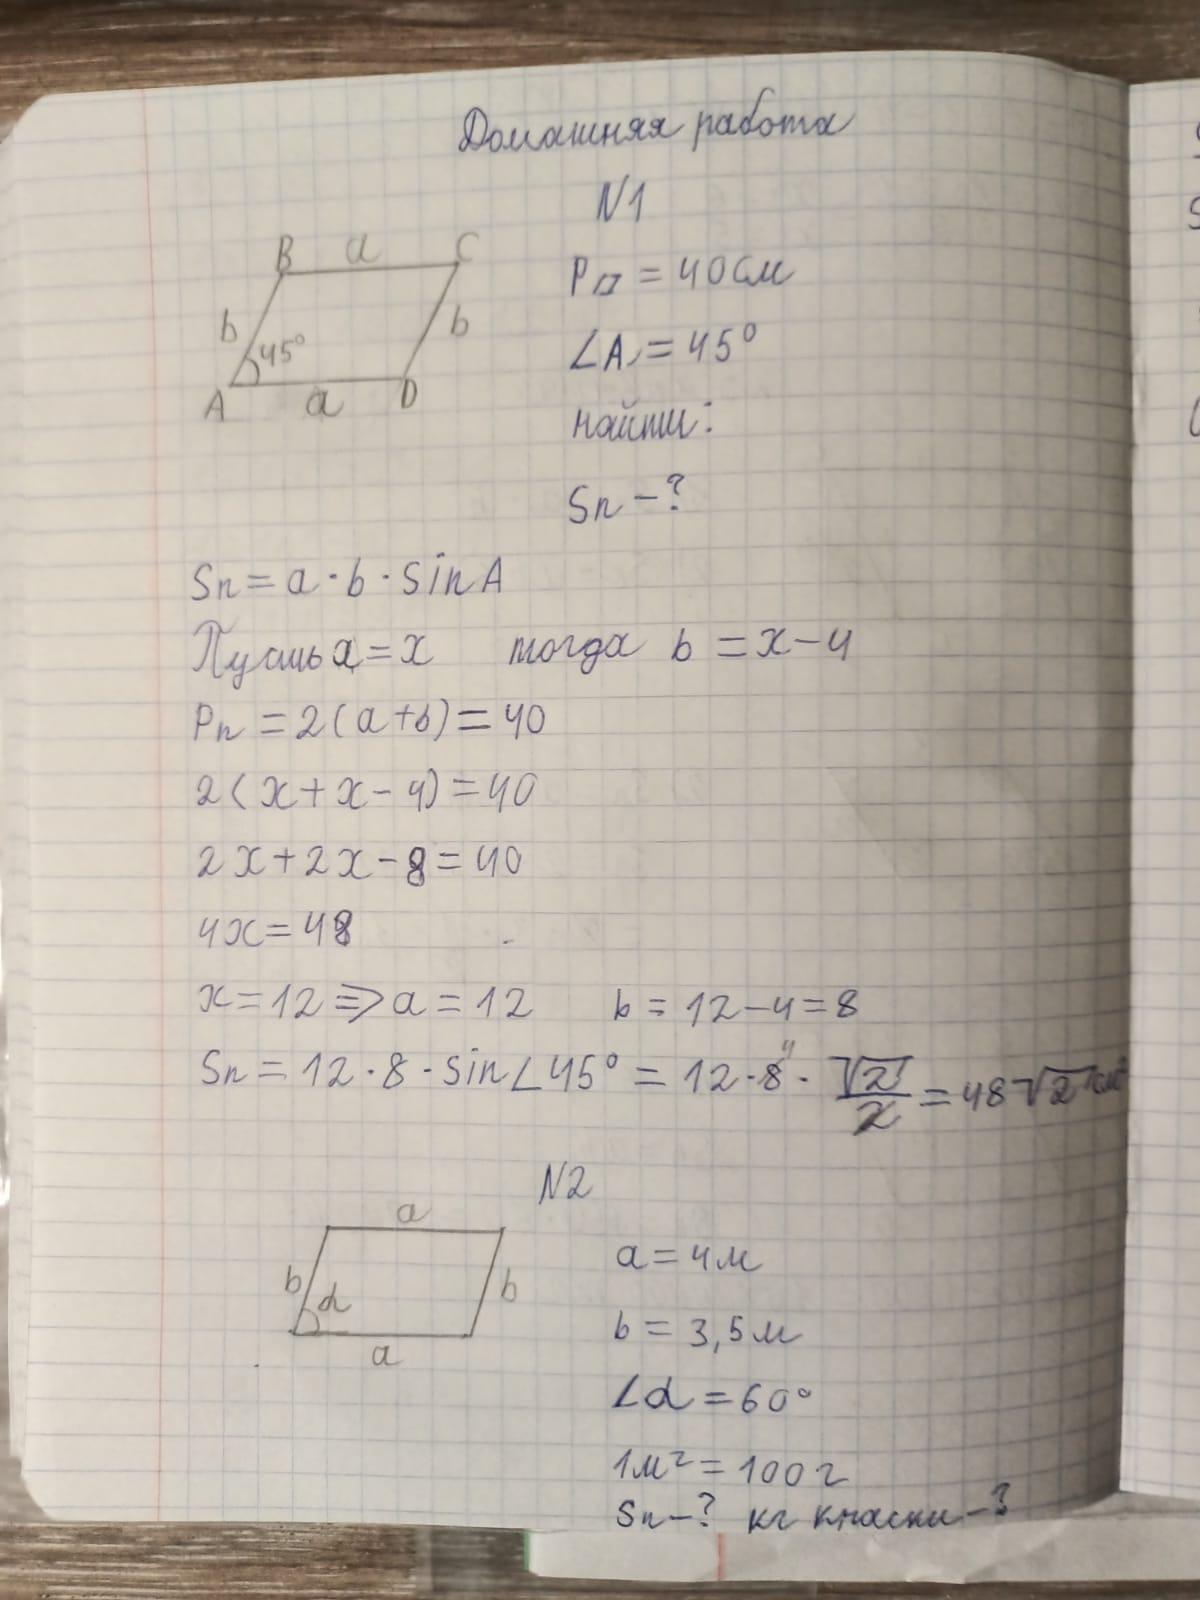 Домашняя работа
N1
B a C
b 45° b
A a D
P▱ = 40см
∠A = 45°
найти:
Sп - ?
Sп = a · b · sin A
Пусть a = x тогда b = x - 4
Pп = 2(a+b) = 40
2(x + x - 4) = 40
2x + 2x - 8 = 40
4x = 48
x = 12 => a = 12 b = 12 - 4 = 8
Sп = 12 · 8 · sin∠45° = 12 · 8 4 · √2/2 = 48√2 см²
N2
a
b α b
a
a = 4м
b = 3,5м
∠α = 60°
1м² = 100г
Sп - ? кг краски - ?